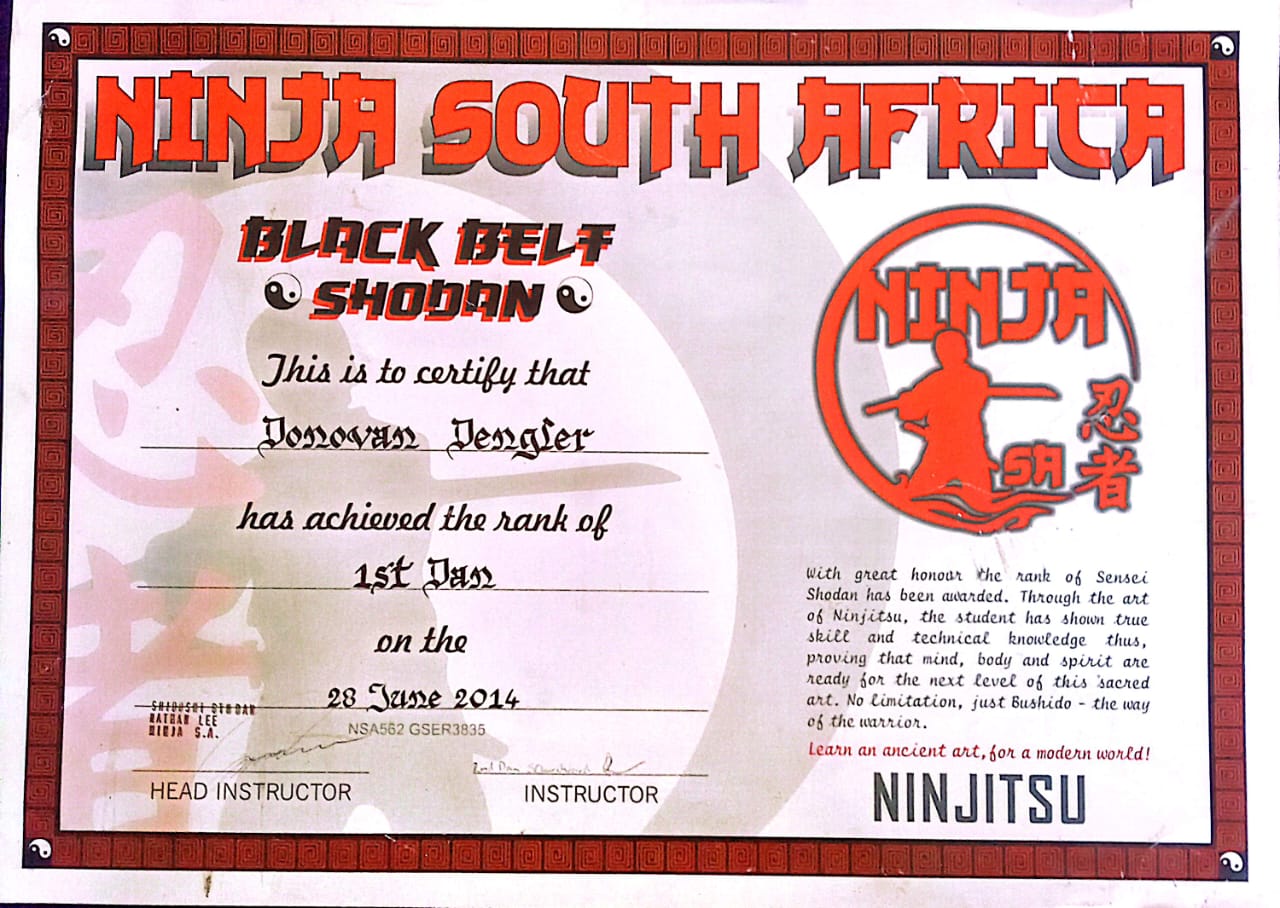 NINJA SOUTH AFRICA
BLACK BELT
SHODAN
This is to certify that
Donovan Dengler
has achieved the rank of
1st Dan
on the
28 June 2014
NATHAN LEE
NINJA S.A.
NSA562 GSER3835
2nd Dan
HEAD INSTRUCTOR
INSTRUCTOR
NINJA
SA
忍者
With great honour the rank of Sensei
Shodan has been awarded. Through the art
of Ninjitsu, the student has shown true
skill and technical knowledge thus,
proving that mind, body and spirit are
ready for the next level of this sacred
art. No limitation, just Bushido - the way
of the warrior.
Learn an ancient art, for a modern world!
NINJITSU